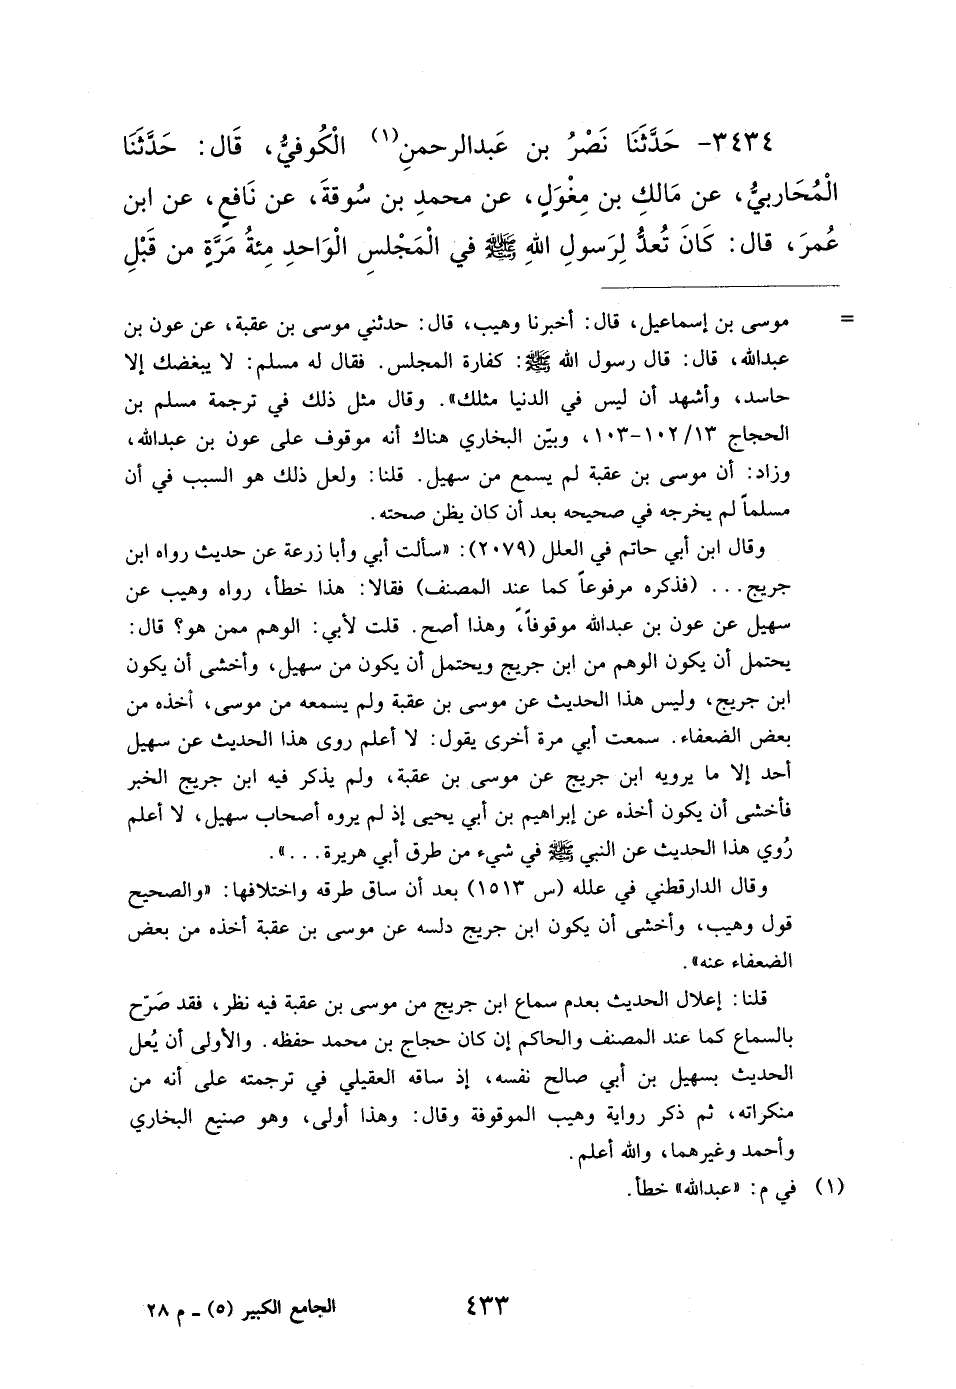 ٣٤٣٤- حَدَّثَنَا نَصْرُ بن عَبدالرحمنِ(١) الْكُوفيُّ، قَال: حَدَّثَنَا
الْمُحَاربيُّ، عن مَالكِ بن مِغْوَلٍ، عن محمدِ بن سُوقةَ، عن نَافعٍ، عن ابن
عُمرَ، قال: كَانَ تُعدُّ لِرَسولِ اللهِ ﷺ في الْمَجْلسِ الْوَاحدِ مِئةُ مَرَّةٍ من قَبْلِ
= موسى بن إسماعيل، قال: أخبرنا وهيب، قال: حدثني موسى بن عقبة، عن عون بن
عبدالله، قال: قال رسول الله ﷺ: كفارة المجلس. فقال له مسلم: لا يبغضك إلا
حاسد، وأشهد أن ليس في الدنيا مثلك». وقال مثل ذلك في ترجمة مسلم بن
الحجاج ١٠٢/١٣-١٠٣، وبيّن البخاري هناك أنه موقوف على عون بن عبدالله،
وزاد: أن موسى بن عقبة لم يسمع من سهيل. قلنا: ولعل ذلك هو السبب في أن
مسلماً لم يخرجه في صحيحه بعد أن كان يظن صحته.
وقال ابن أبي حاتم في العلل (٢٠٧٩): «سألت أبي وأبا زرعة عن حديث رواه ابن
جريج... (فذكره مرفوعاً كما عند المصنف) فقالا: هذا خطأ، رواه وهيب عن
سهيل عن عون بن عبدالله موقوفاً، وهذا أصح. قلت لأبي: الوهم ممن هو؟ قال:
يحتمل أن يكون الوهم من ابن جريج ويحتمل أن يكون من سهيل، وأخشى أن يكون
ابن جريج، وليس هذا الحديث عن موسى بن عقبة ولم يسمعه من موسى، أخذه من
بعض الضعفاء. سمعت أبي مرة أخرى يقول: لا أعلم روى هذا الحديث عن سهيل
أحد إلا ما يرويه ابن جريج عن موسى بن عقبة، ولم يذكر فيه ابن جريج الخبر
فأخشى أن يكون أخذه عن إبراهيم بن أبي يحيى إذ لم يروه أصحاب سهيل، لا أعلم
رُوي هذا الحديث عن النبي ﷺ في شيء من طرق أبي هريرة...».
وقال الدارقطني في علله (س ١٥١٣) بعد أن ساق طرقه واختلافها: «والصحيح
قول وهيب، وأخشى أن يكون ابن جريج دلسه عن موسى بن عقبة أخذه من بعض
الضعفاء عنه».
قلنا: إعلال الحديث بعدم سماع ابن جريج من موسى بن عقبة فيه نظر، فقد صَرّح
بالسماع كما عند المصنف والحاكم إن كان حجاج بن محمد حفظه. والأولى أن يُعل
الحديث بسهيل بن أبي صالح نفسه، إذ ساقه العقيلي في ترجمته على أنه من
منكراته، ثم ذكر رواية وهيب الموقوفة وقال: وهذا أولى، وهو صنيع البخاري
وأحمد وغيرهما، والله أعلم.
(١) في م: «عبدالله» خطأ.
٤٣٣
الجامع الكبير (٥) - م ٢٨